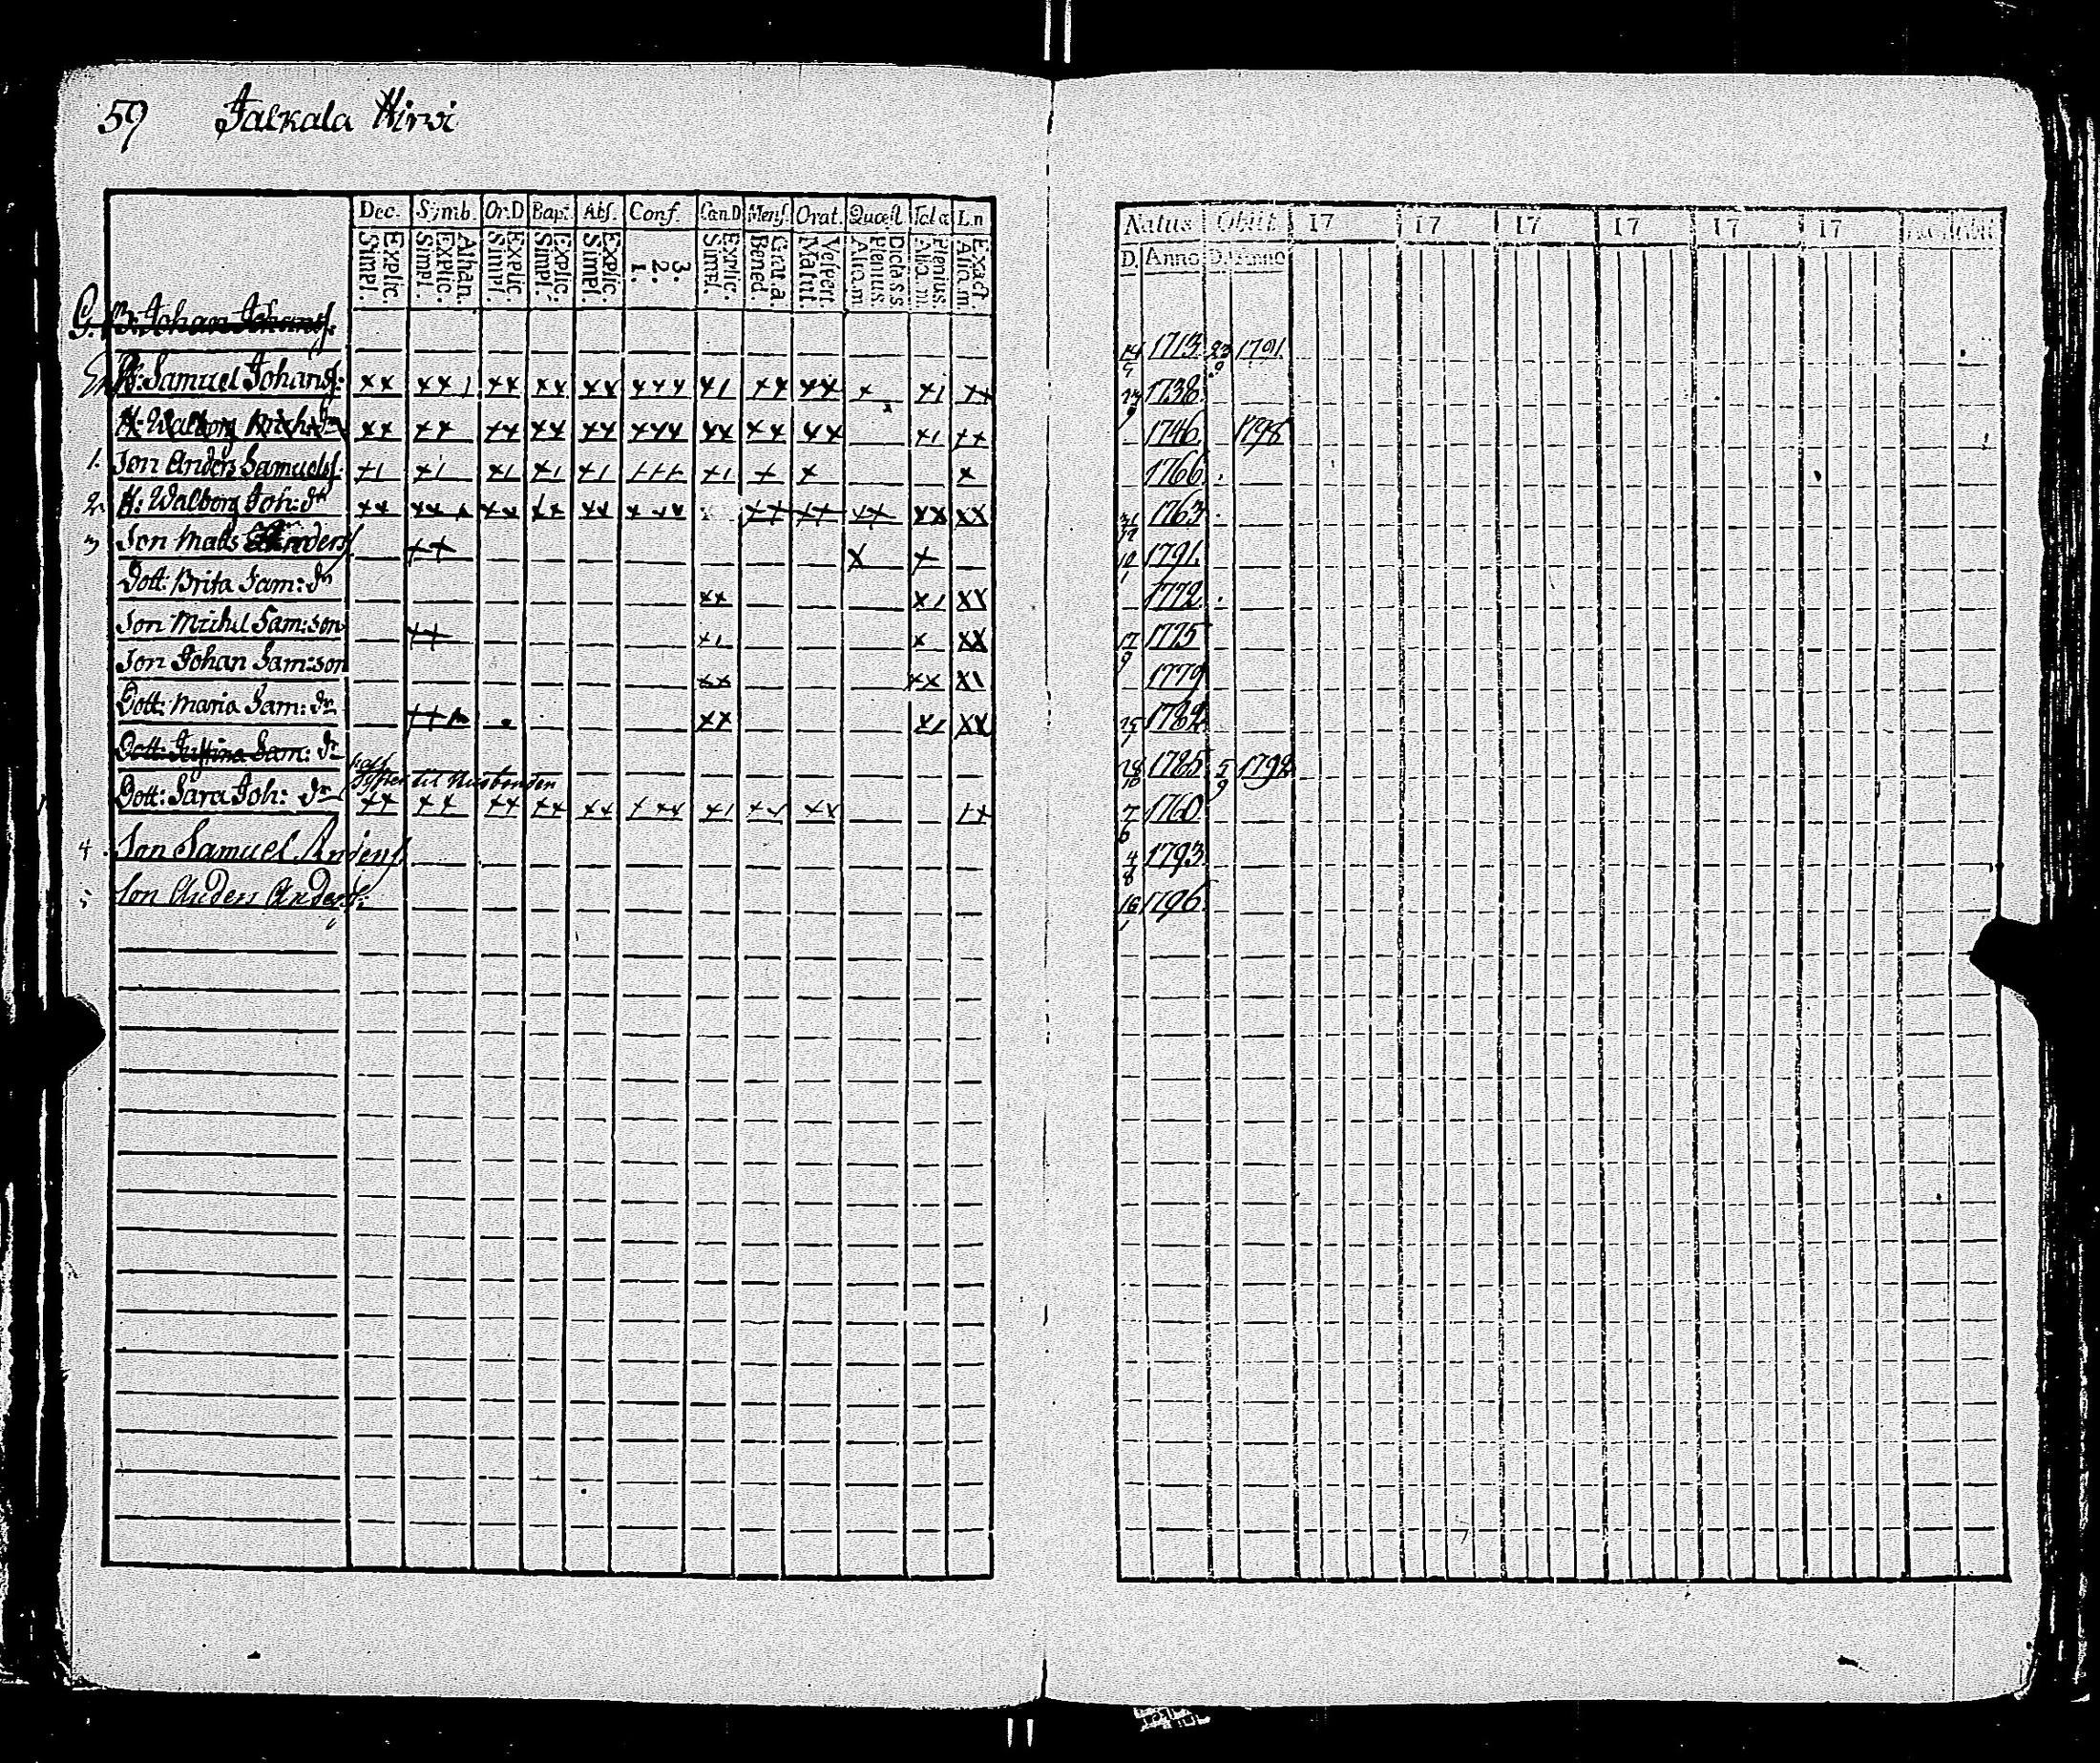 59 Jalkala Hirvi
Dec. Symb. Or.D Bapt. Abs. Conf. Can.D Mens. Orat. Quæst. L.n
Explic. Simpl. Athan. Explic. Simpl. Explic. Simpl. Explic. Simpl. Explic. Simpl. 3. 2. 1. Explic. Simpl. Grat.a. Bened. Vespert. Matut. Dicta s.s. Plenius. Aliq.m. Plenius. Aliq.m. Exact. Aliq.m.
Natus Obiit 17 17 17 17 17 17
D. Anno D. Anno
G. B. Johan Johans: 14 1713 23 9 1791
B: Samuel Johans: xx xx1 xx xx xx xxx x1 xx xx x x1 xx 1738
H: Walborg Mich:dr xx xx xx xx xx xxx xx xx xx x1 xx 1746 1798
1. Son Anders Samuels: x1 x1 x1 x1 x1 x1 x x x 1766
2. H: Walborg Joh:dr xx xxx xx xx xx xxx xx xx xx xx xx 1763
3 Son Mats Anders xx x x 10 1 1791.
Dott: Brita Sam:dr xx x1 xx 1772
Son Michel Sam:son xx x1 x xx 17 9 1775
Son Johan Sam:son xx xx x1 1779
Dott: Maria Sam:dr xx x1 xx 25 1 1782
Dott: Justina Sam:dr 1785 5 9 1792
til Husbonden
Dott: Sara Joh:dr xx xx xx xx xx xxx x1 xx xx xx 7 6 1760
4. Son Samuel Anders 4 8 1793
5 Son Anders Anders: 16 1 1796